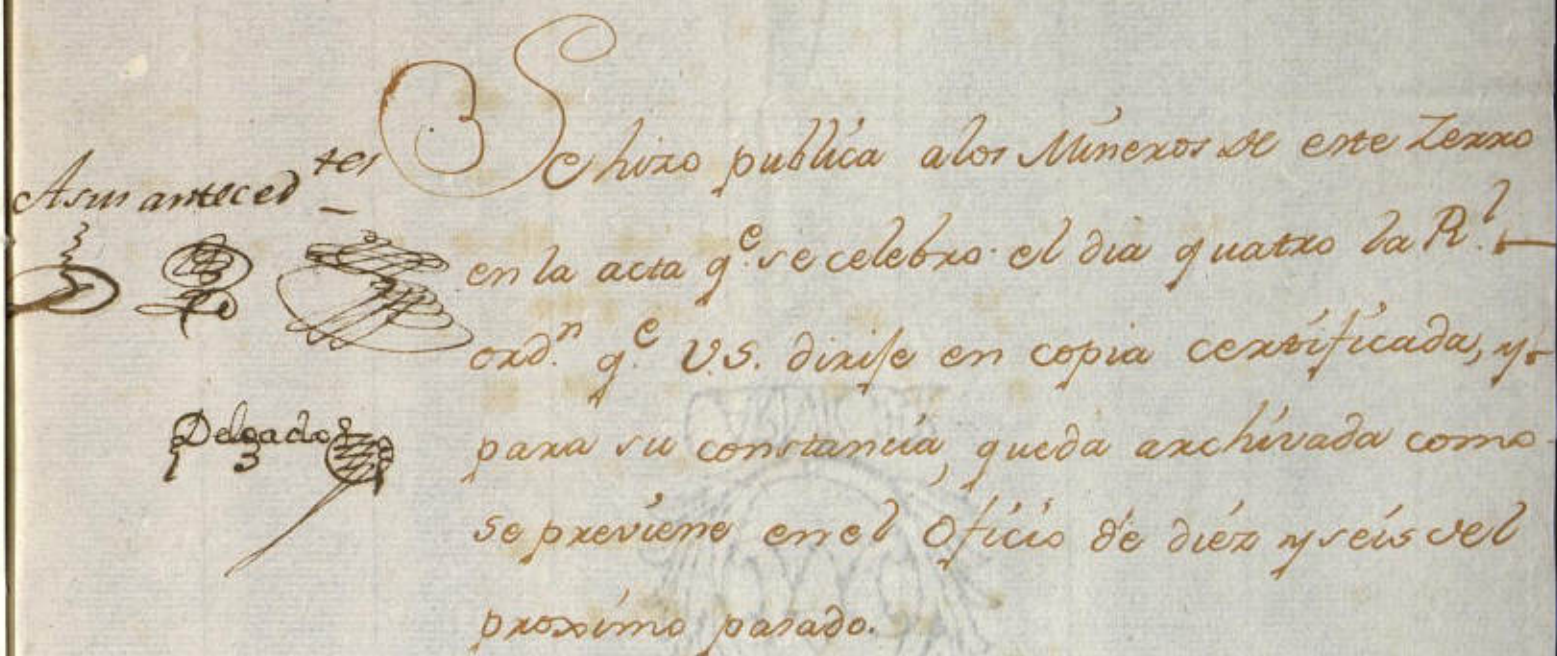 A sus anteced.tes
Delgado
Se hizo publica a los Mineros de este Zerro
en la acta q.e se celebro el dia quatro la R.l
ord.n q.e V.S. dirije en copia certificada, y
para su constancia, queda archivada como
se previene en el Oficio de diez y seis del
proximo pasado.